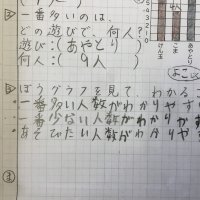 一番多いのは、
どの遊びで、何人?
遊び:(あやとり)
何人:(9人)
ぼうグラフを見て、わかるこ
一番多い人数がわかりやす
一番少ない人数がわかりやす
あそびたい人数がわかりや
5
4
3
2
1
0
けん玉
こま
あやとり
よこ